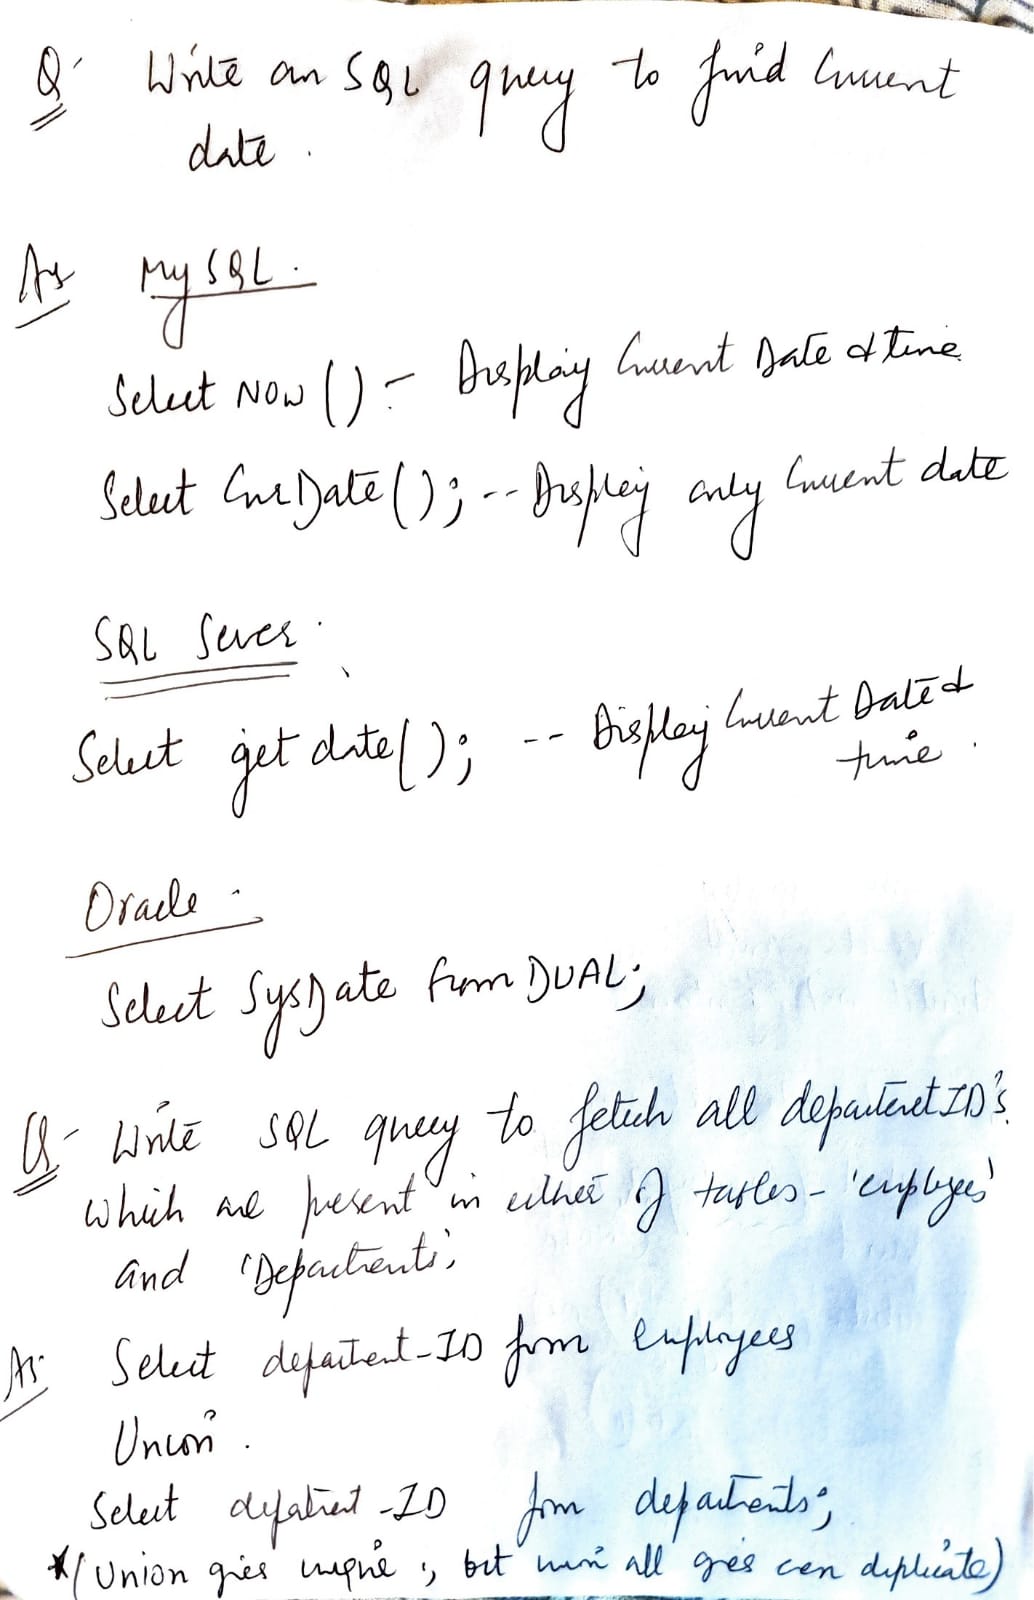 Q- Write an SQL query to find Current
date.
As MySQL.
Select NOW() - Display Current Date & time
Select CurDate(); -- Display only Current date
SQL Server.
Select getdate(); -- Display Current Date &
time.
Oracle -
Select SysDate from DUAL;
Q- Write SQL query to fetch all department ID's
which are present in either of tables - 'employees'
and 'Departments'
As Select department-ID from employees
Union.
Select department-ID from departments;
*(Union gives unique, but union all gives even duplicate)